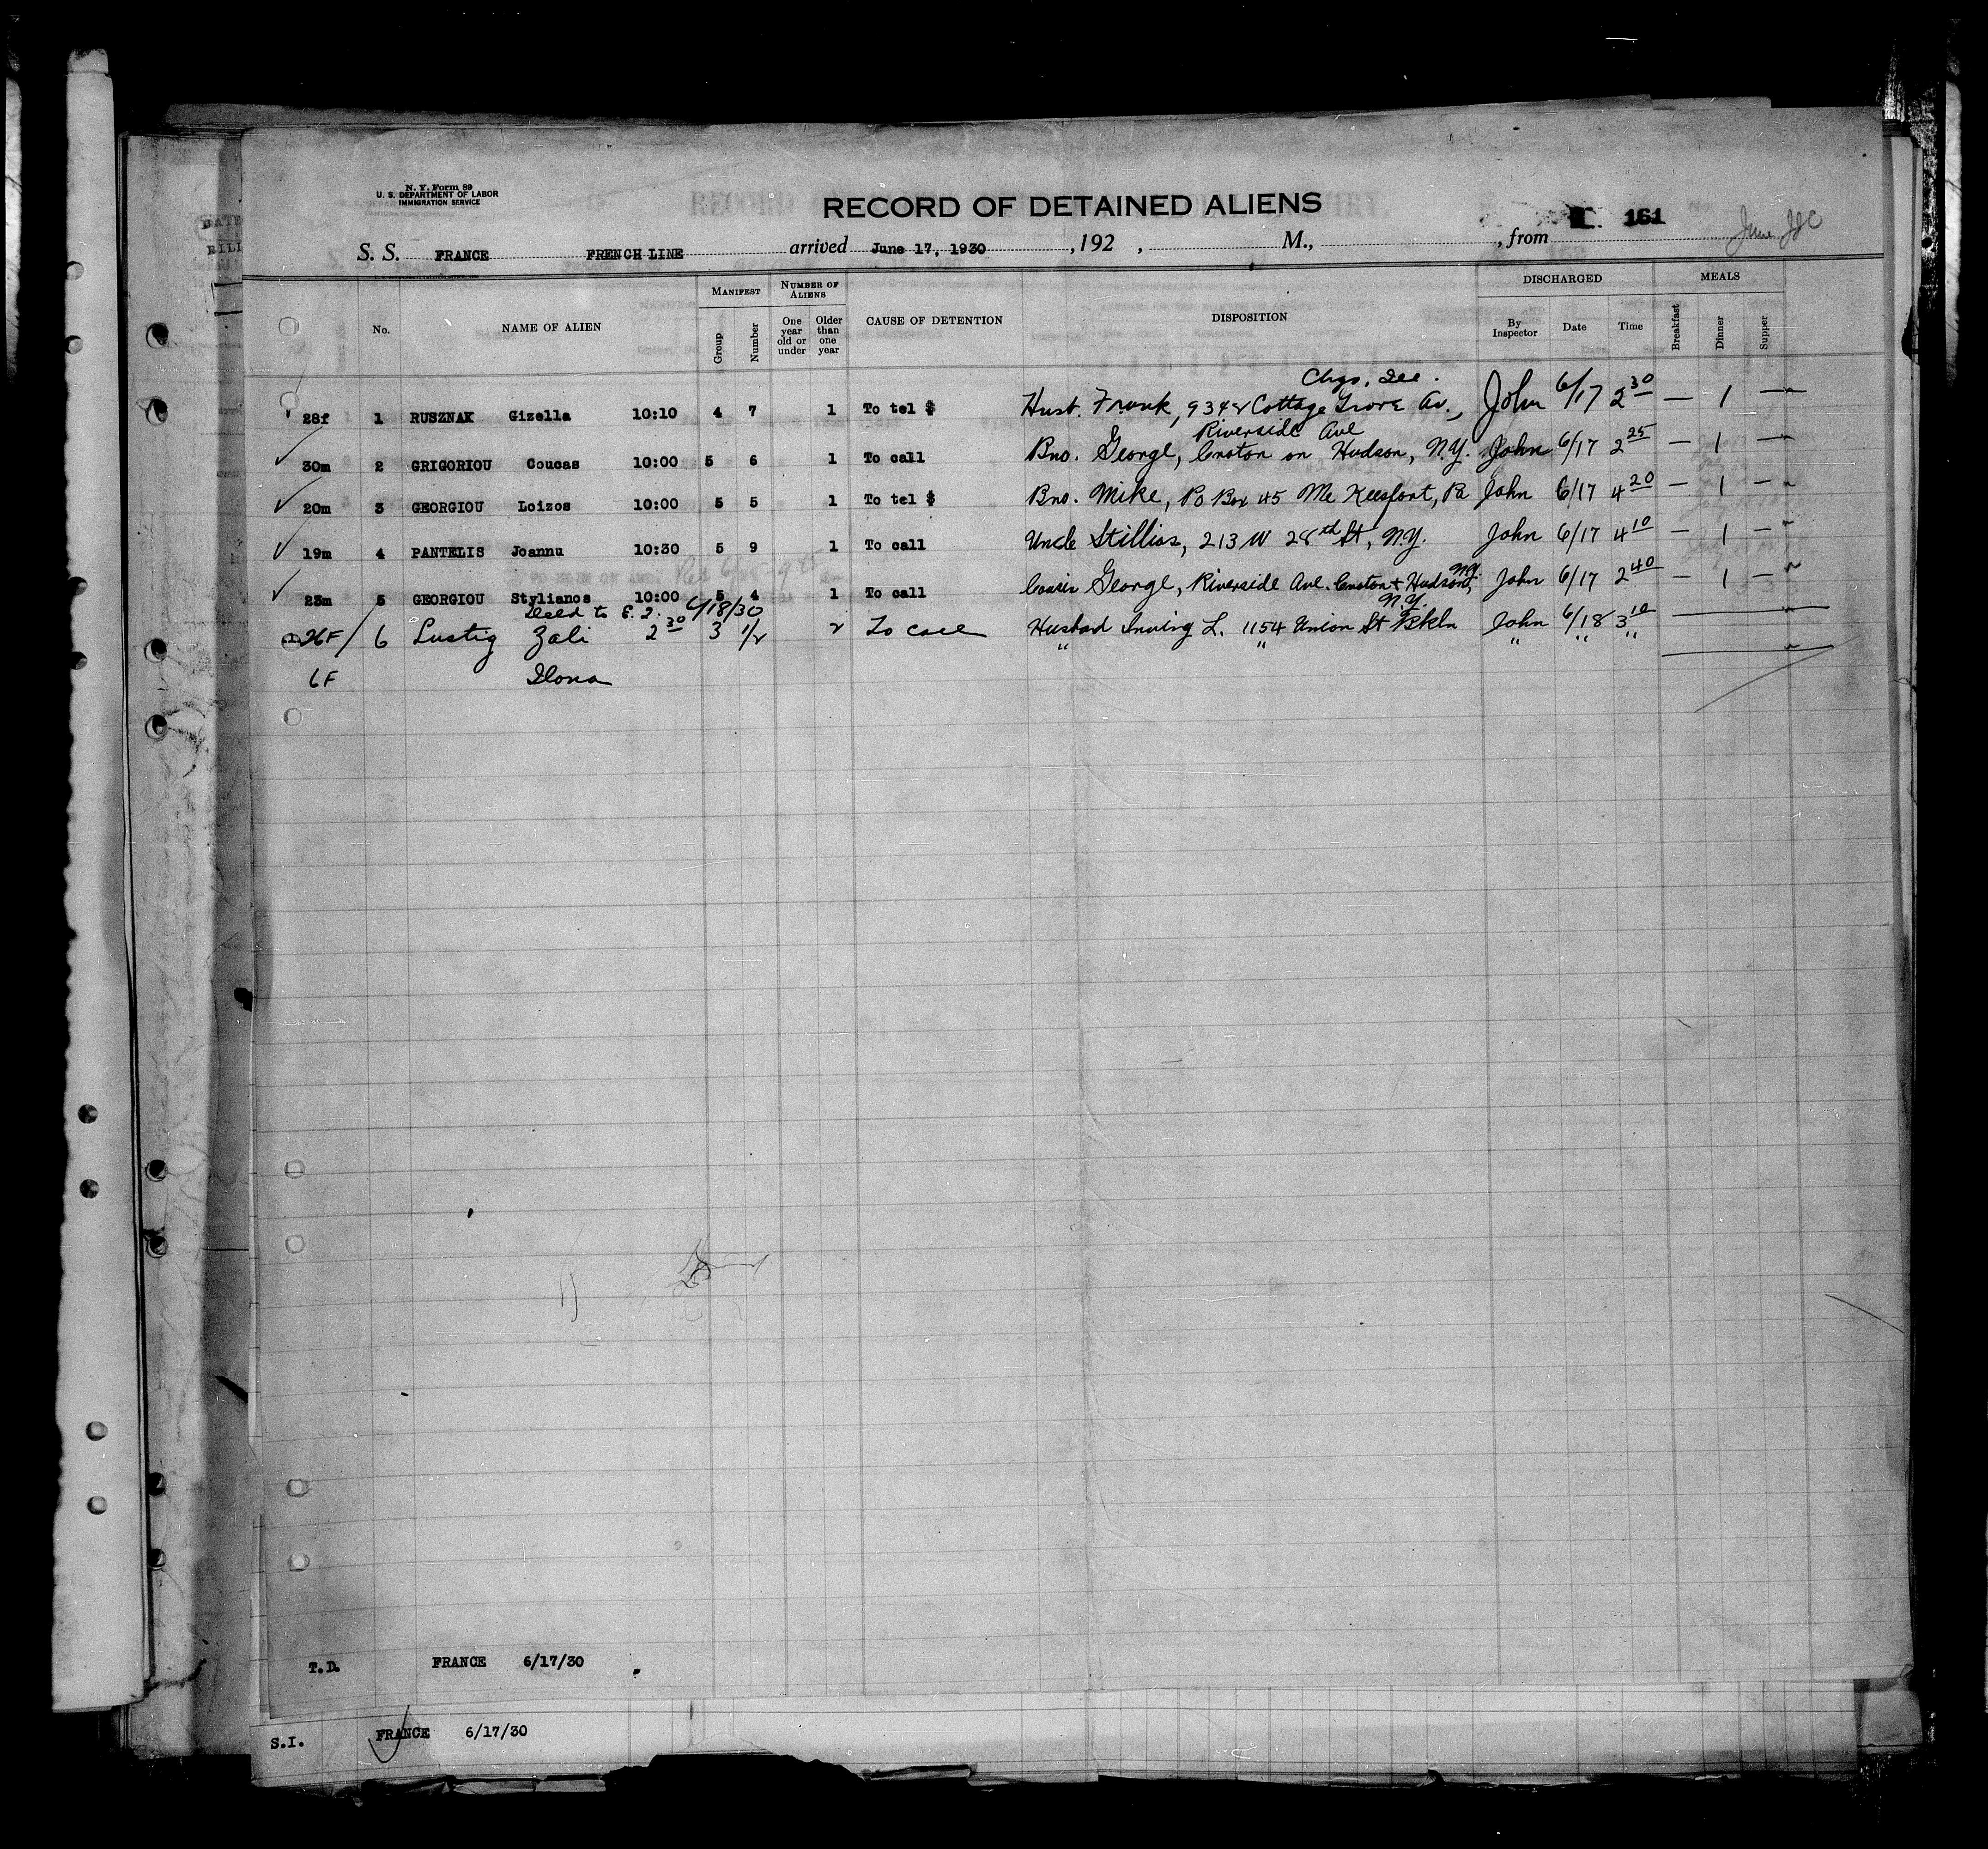 N. Y. Form 89
U. S. DEPARTMENT OF LABOR
IMMIGRATION SERVICE
RECORD OF DETAINED ALIENS
161
S. S. FRANCE FRENCH LINE arrived June 17, 1930, 192 , M., , from
No. NAME OF ALIEN MANIFEST Group Number NUMBER OF ALIENS One year old or under Older than one year CAUSE OF DETENTION DISPOSITION DISCHARGED By Inspector Date Time MEALS Breakfast Dinner Supper
Chgo, Ill.
28f 1 RUSZNAK Gizella 10:10 4 7 1 To tel $ Husb. Frank, 9348 Cottage Grove Av., John 6/17 2 30 — 1 —
Riverside Ave
30m 2 GRIGORIOU Coucas 10:00 5 6 1 To call Bro. George, Croton on Hudson, N.Y. John 6/17 2 25 — 1 —
20m 3 GEORGIOU Loizos 10:00 5 5 1 To tel $ Bro. Mike, Po Box 45 Mc Keesport, Pa John 6/17 4 20 — 1 —
19m 4 PANTELIS Joannu 10:30 5 9 1 To call Uncle Stillios, 213 W 28th St, N.Y. John 6/17 4 10 — 1 —
N.Y.
23m 5 GEORGIOU Stylianos 10:00 5 4 1 To call Cousin George, Riverside Ave. Croton + Hudson, John 6/17 2 40 — 1 —
6/18/30 N.Y.
26F 6 Lustig Zali 2 30 3 1/2 2 To call Husbad Irving L. 1154 Union St Bkln John 6/18 3 10
" " " " "
6F Ilona
T.D. FRANCE 6/17/30
S.I. FRANCE 6/17/30